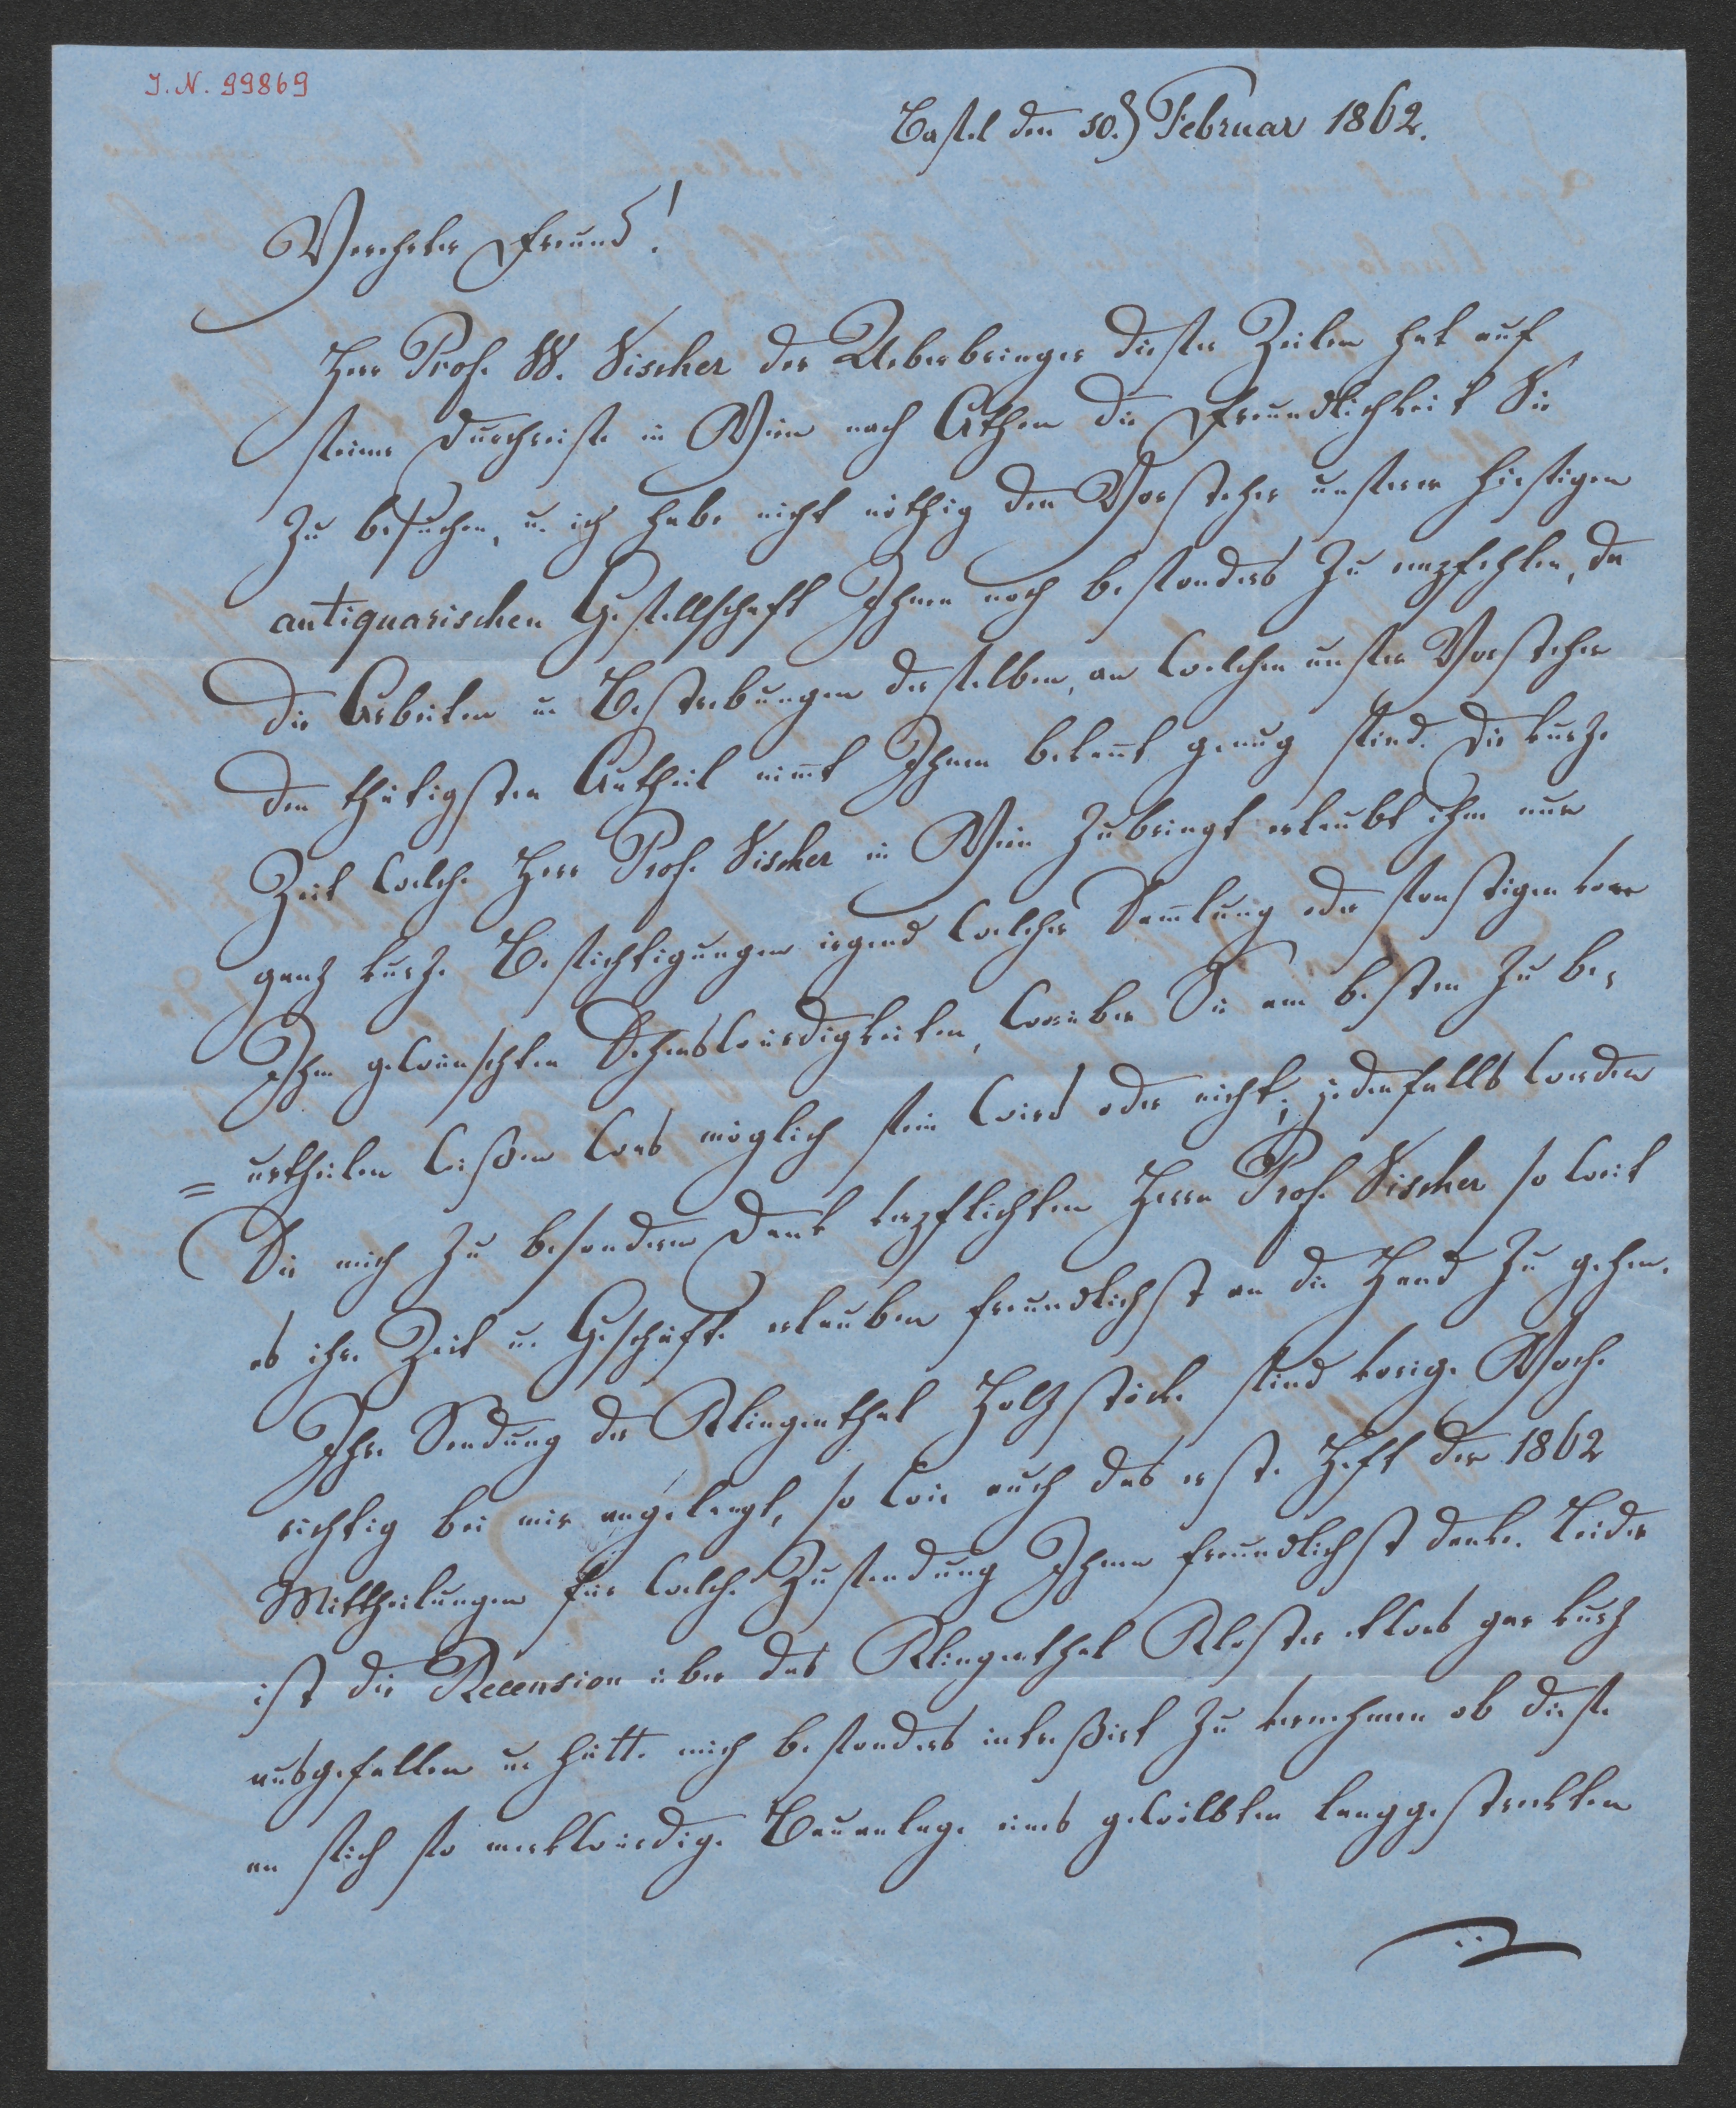 J. N. 99869
Basel den 10.ᵗ Februar 1862.
Verehrter Freund!
Herr Prof. W. Vischer der Ueberbringer dieser Zeilen hat auf
seiner Durchreise in Wien nach Athen die Freundlichkeit Sie
zu besuchen, u. ich habe nicht nöthig den Vorsteher unserer hiesigen
antiquarischen Gesellschaft Ihnen noch besonders zu empfehlen, da
die Arbeiten u. Bestrebungen derselben, an welchen unser Vorsteher
den thätigsten Antheil nim̄t Ihnen bekan̄t genug sind. Die kurze
Zeit welche Herr Prof. Vischer in Wien zubringt erlaubt ihm nur
ganz kurze Besichtigungen irgend welcher Sam̄lung oder sonstigen von
Ihm gewünschten Sehenswürdigkeiten, worüber Sie am besten zu be-
=urtheilen wißen was möglich sein wird oder nicht; jedenfalls werden
Sie mich zu besonderm Dank verpflichten Herrn Prof. Vischer so weit
es ihre Zeit u. Geschäfte erlauben freundlichst an die Hand zu gehen.
Ihre Sendung der Klingenthal Holzstöcke sind vorige Woche
richtig bei mir angelangt, so wie auch das erste Heft der 1862
Mittheilungen für welche Zusendung Ihnen freundlichst danke. Leider
ist die Recension über das Klingenthal Kloster etwas gar kurz
ausgefallen u. hätte mich besonders intereßirt zu vernehmen ob diese
an sich so merkwürdige Bauanlage eines gewölbten langgestreckten